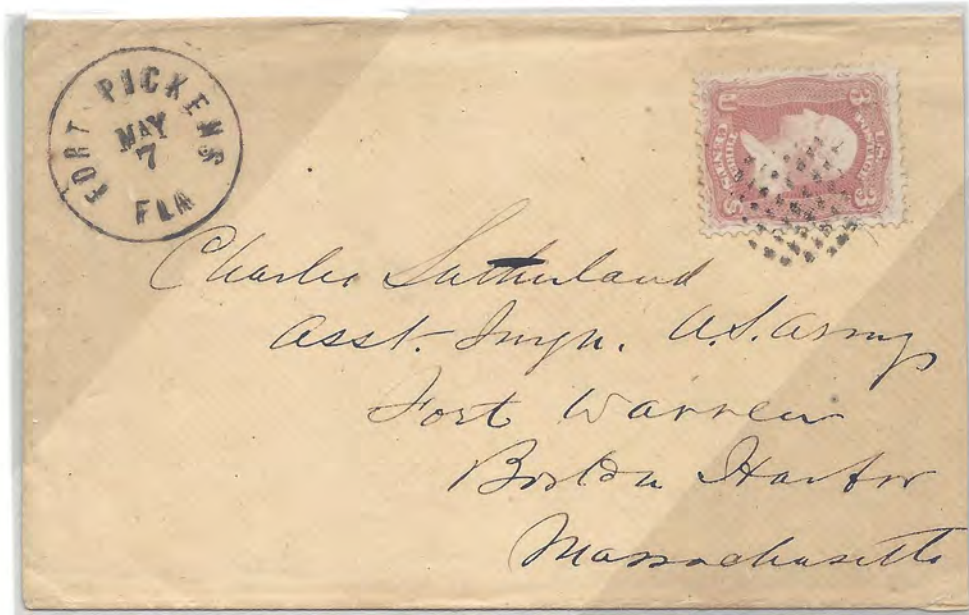 FORT PICKENS
MAY
7
FLA
U.S. POSTAGE
3 3
THREE CENTS
U S
Charles Sutherland
Asst. Surgn. U.S. Army
Fort Warren
Boston Harbor
Massachusetts